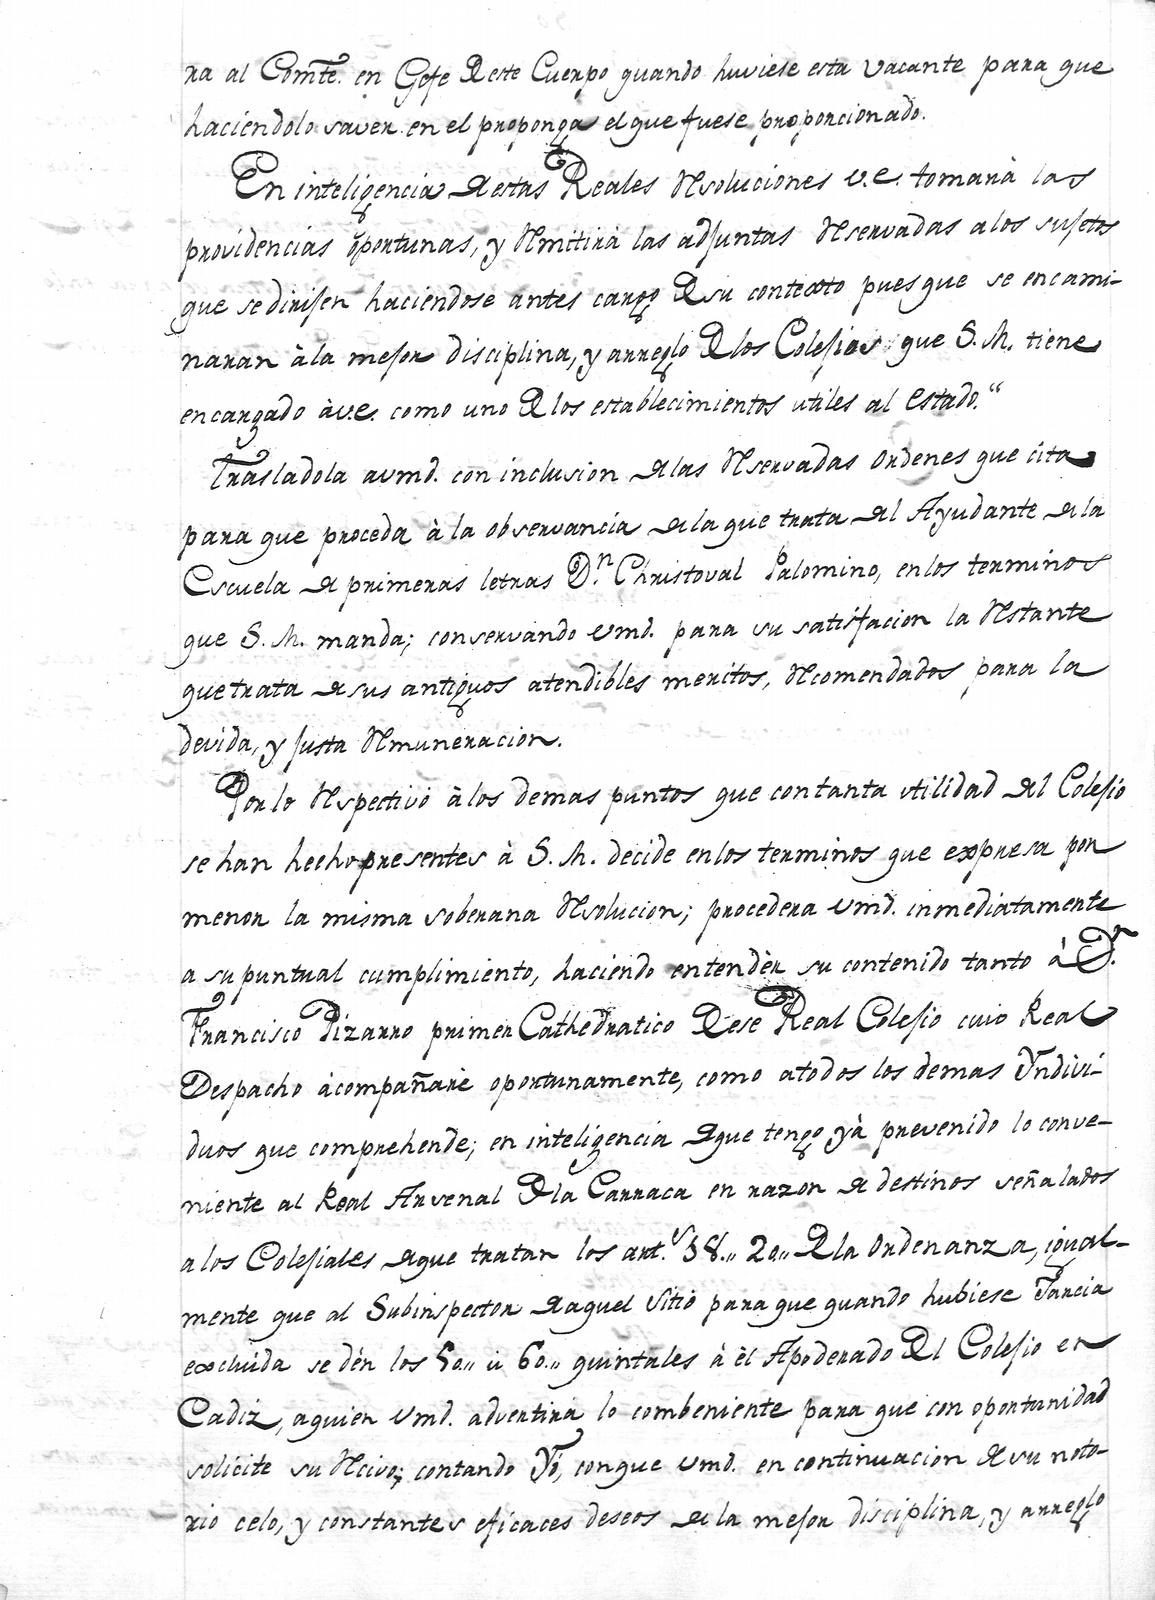 ra al Comte. en Gefe de este Cuerpo quando huviese esta vacante para que
haciendolo saver en el proponga el que fuese proporcionado.
En inteligencia de estas Reales Resoluciones v.e. tomarà las
providencias oportunas, y Remitirà las adjuntas Reservadas alos sujetos
que se dirijen haciendose antes cargo de su contexto pues que se encami-
naran àla mejor disciplina, y arreglo de los Colejios que S. M. tiene
encargado àv.e. como uno de los establecimientos utiles al Estado."
Trasladola avmd. con inclusion de las Reservadas Ordenes que cita
para que proceda à la observancia de la que trata del Ayudante de la
Escuela de primeras letras Dn. Christoval Palomino, enlos terminos
que S. M. manda; conservando vmd. para su satisfacion la Restante
que trata de sus antiguos atendibles meritos, Recomendados para la
devida, y justa Remuneracion.
Por lo Respectivo àlos demas puntos que con tanta utilidad del Colejio
se han hecho presentes à S. M. decide enlos terminos que expresa por
menor la misma soberana Resolucion; procedera vmd. inmediatamente
a su puntual cumplimiento, haciendo entendèr su contenido tanto à Dn.
Francisco Pizarro primer Cathedratico de ese Real Colejio cuio Real
Despacho àcompañarè oportunamente, como atodos los demas Yndivi-
duos que comprehende; en inteligencia de que tengo yà prevenido lo conve-
niente al Real Arsenal de la Carraca en razon de destinos señalados
alos Colejiales de que tratan los art.s 38.. 20.. de la Ordenanza, igual-
mente que al Subinspector de aquel sitio para que quando hubiese Jarcia
excluida se dén los 50.. ù 60.. quintales à èl Apoderado del Colejio en
Cadiz, aquien vmd. advertirà lo combeniente para que con oportunidad
solicite su Recivo; contando Yo, con que vmd. en continuacion de su noto-
rio celo, y constantes eficaces deseos de la mejor disciplina, y arreglo